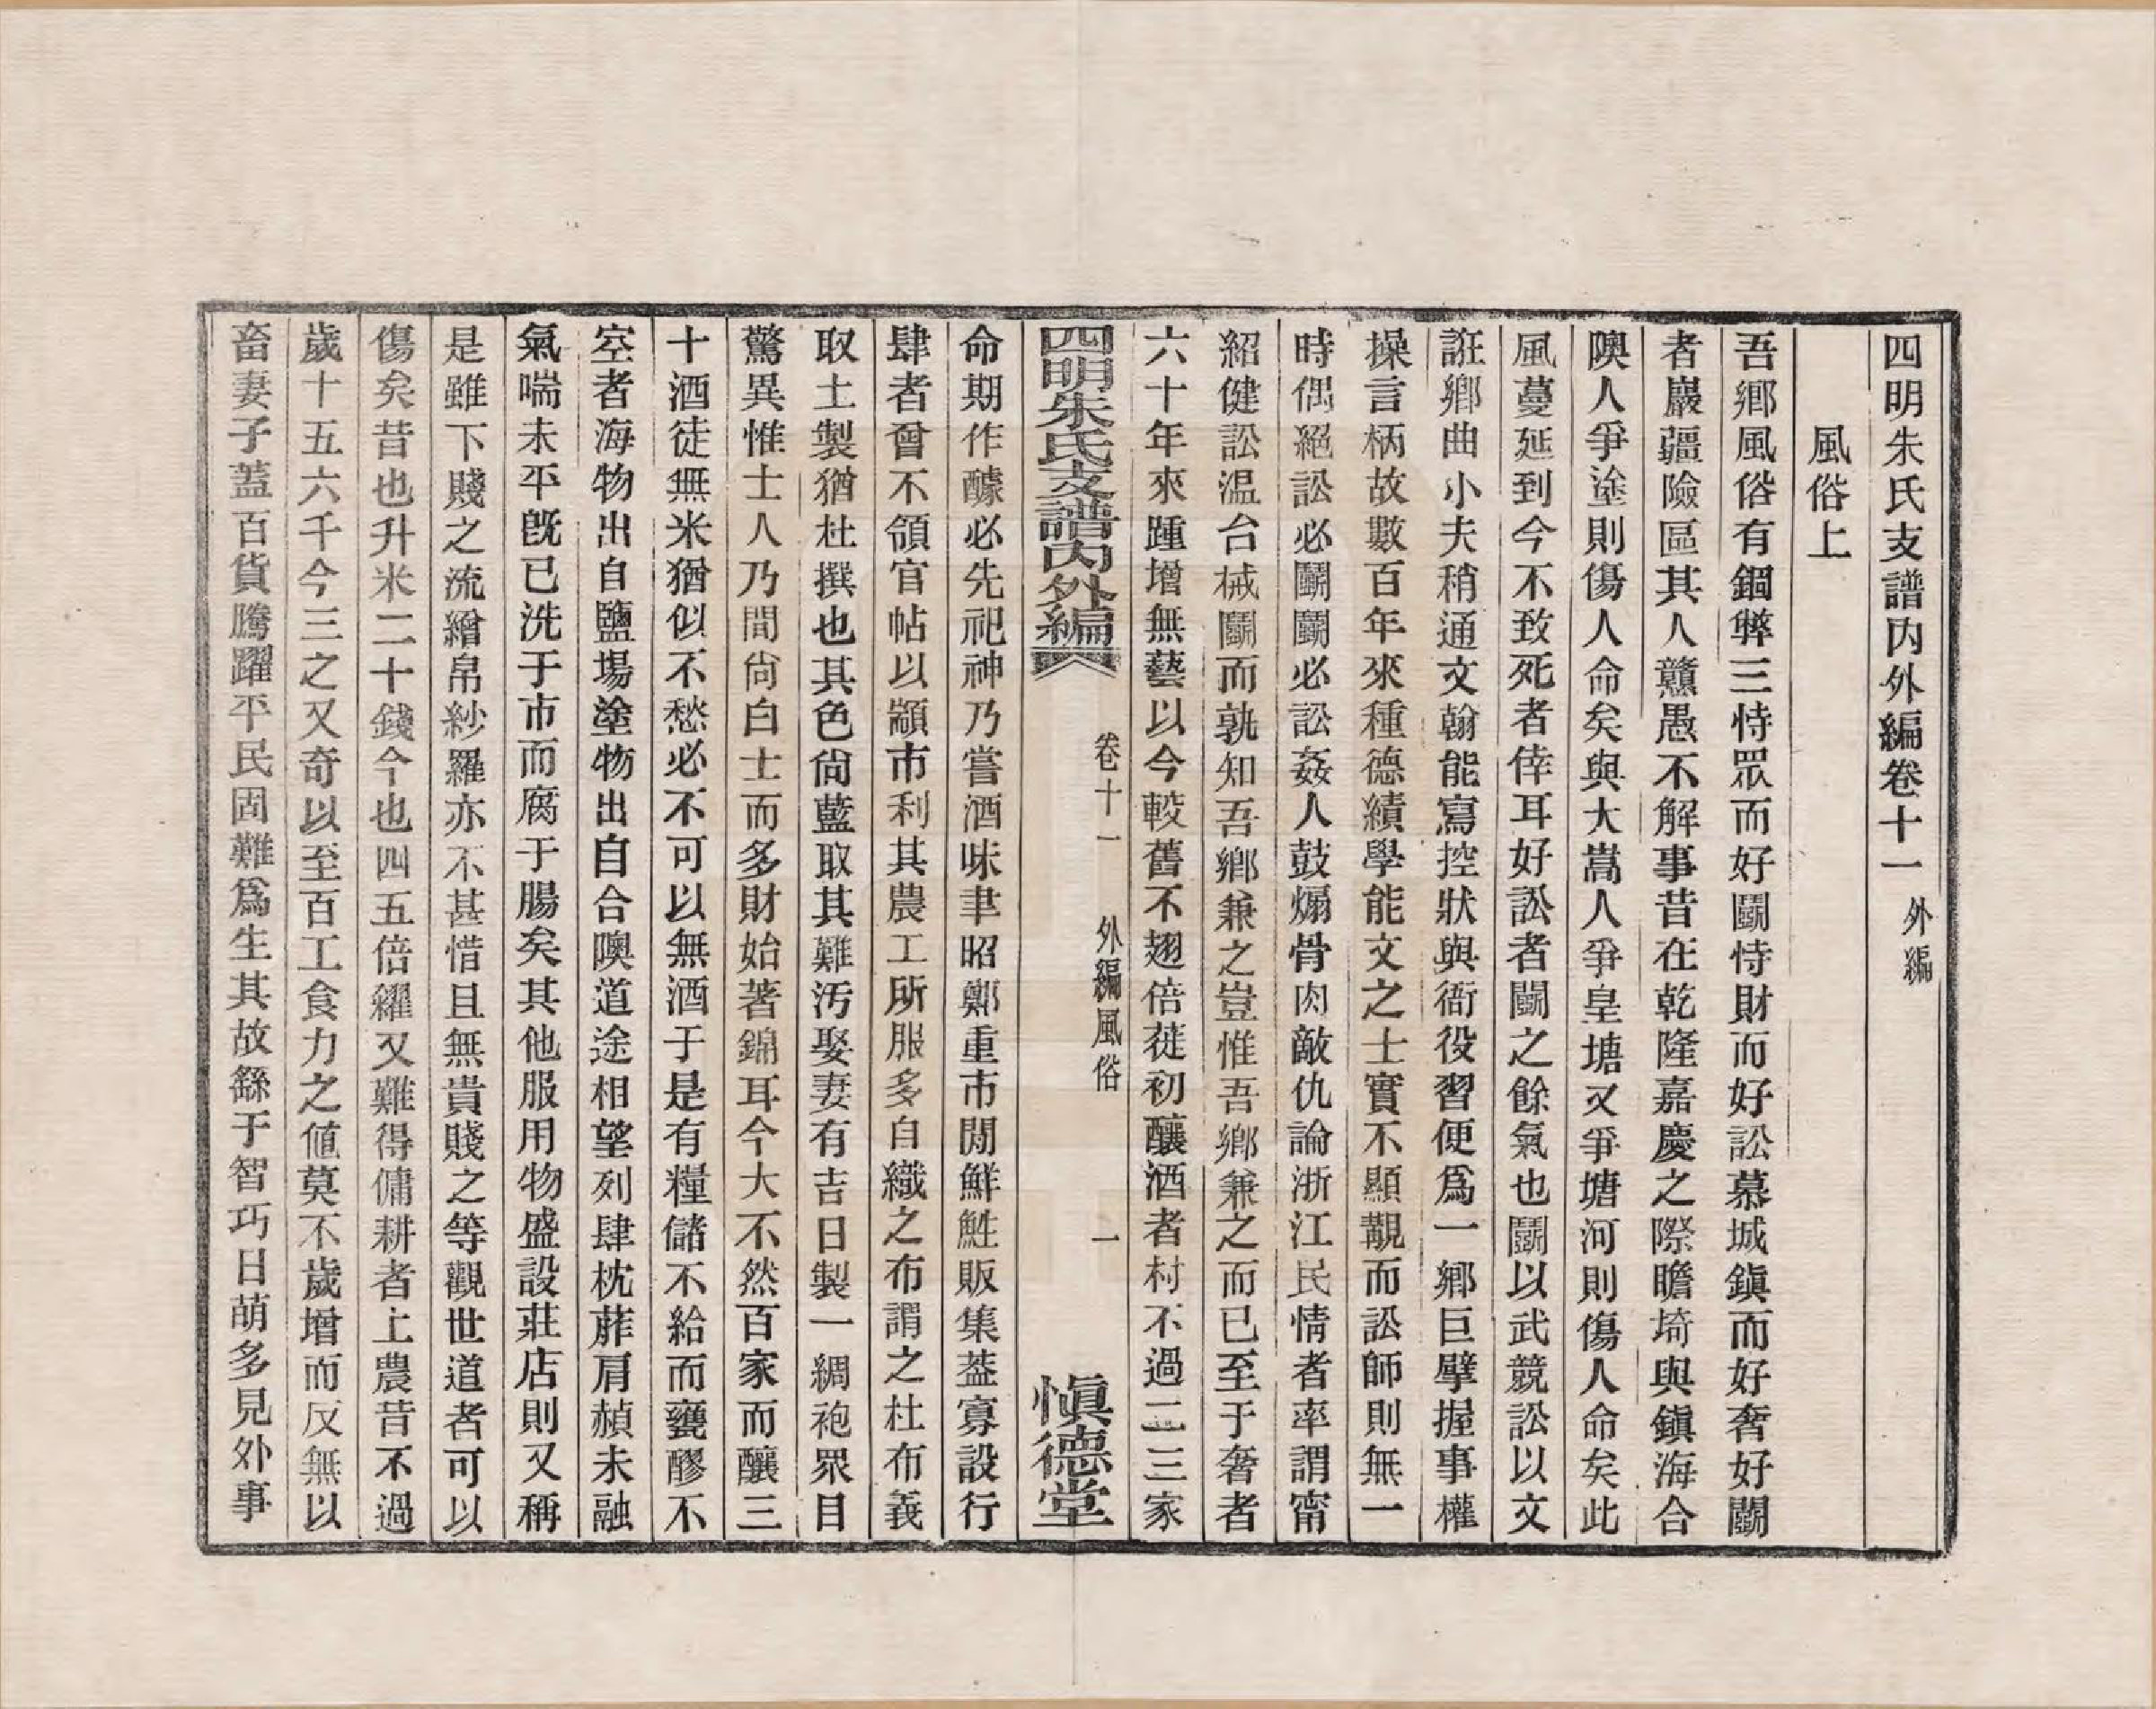 四明朱氏支譜內外編卷十一 外編
風俗上
吾鄉風俗有錮弊三恃眾而好鬭恃財而好訟慕城鎮而好奢好鬭
者巖疆險區其人戇愚不解事昔在乾隆嘉慶之際瞻埼與鎮海合
隩人爭塗則傷人命矣與大嵩人爭皇塘又爭塘河則傷人命矣此
風蔓延到今不致死者倖耳好訟者鬭之餘氣也鬭以武競訟以文
誑鄉曲小夫稍通文翰能寫控狀與衙役習便爲一鄉巨擘握事權
操言柄故數百年來種德績學能文之士實不顯覯而訟師則無一
時偶絕訟必鬭鬭必訟姦人鼓煽骨肉敵仇論浙江民情者率謂甯
紹健訟溫台械鬭而孰知吾鄉兼之豈惟吾鄉兼之而已至于奢者
六十年來踵增無藝以今較舊不翅倍蓰初釀酒者村不過二三家
四明朱氏支譜內外編 卷十一 外編風俗 一 愼德堂
命期作醵必先祀神乃嘗酒味聿昭鄭重市閒鮮鮏販集葢寡設行
肆者曾不領官帖以顓市利其農工所服多自織之布謂之杜布義
取土製猶杜撰也其色尙藍取其難污娶妻有吉日製一綢袍眾目
驚異惟士人乃間尙白士而多財始著錦耳今大不然百家而釀三
十酒徒無米猶似不愁必不可以無酒于是有糧儲不給而甕醪不
空者海物出自鹽場塗物出自合隩道途相望列肆枕蓆肩赬未融
氣喘未平旣已洗于市而腐于腸矣其他服用物盛設莊店則又稱
是雖下賤之流繒帛紗羅亦不甚惜且無貴賤之等觀世道者可以
傷矣昔也升米二十錢今也四五倍糴又難得傭耕者上農昔不過
歲十五六千今三之又奇以至百工食力之値莫不歲增而反無以
畜妻子蓋百貨騰躍平民固難爲生其故繇于智巧日萌多見外事